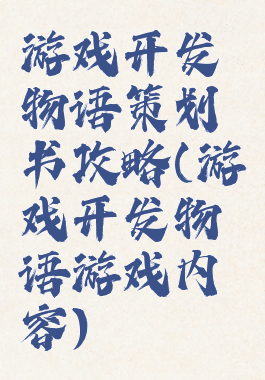 游戏开发
物语策划
书攻略(游
戏开发物
语游戏内
容)